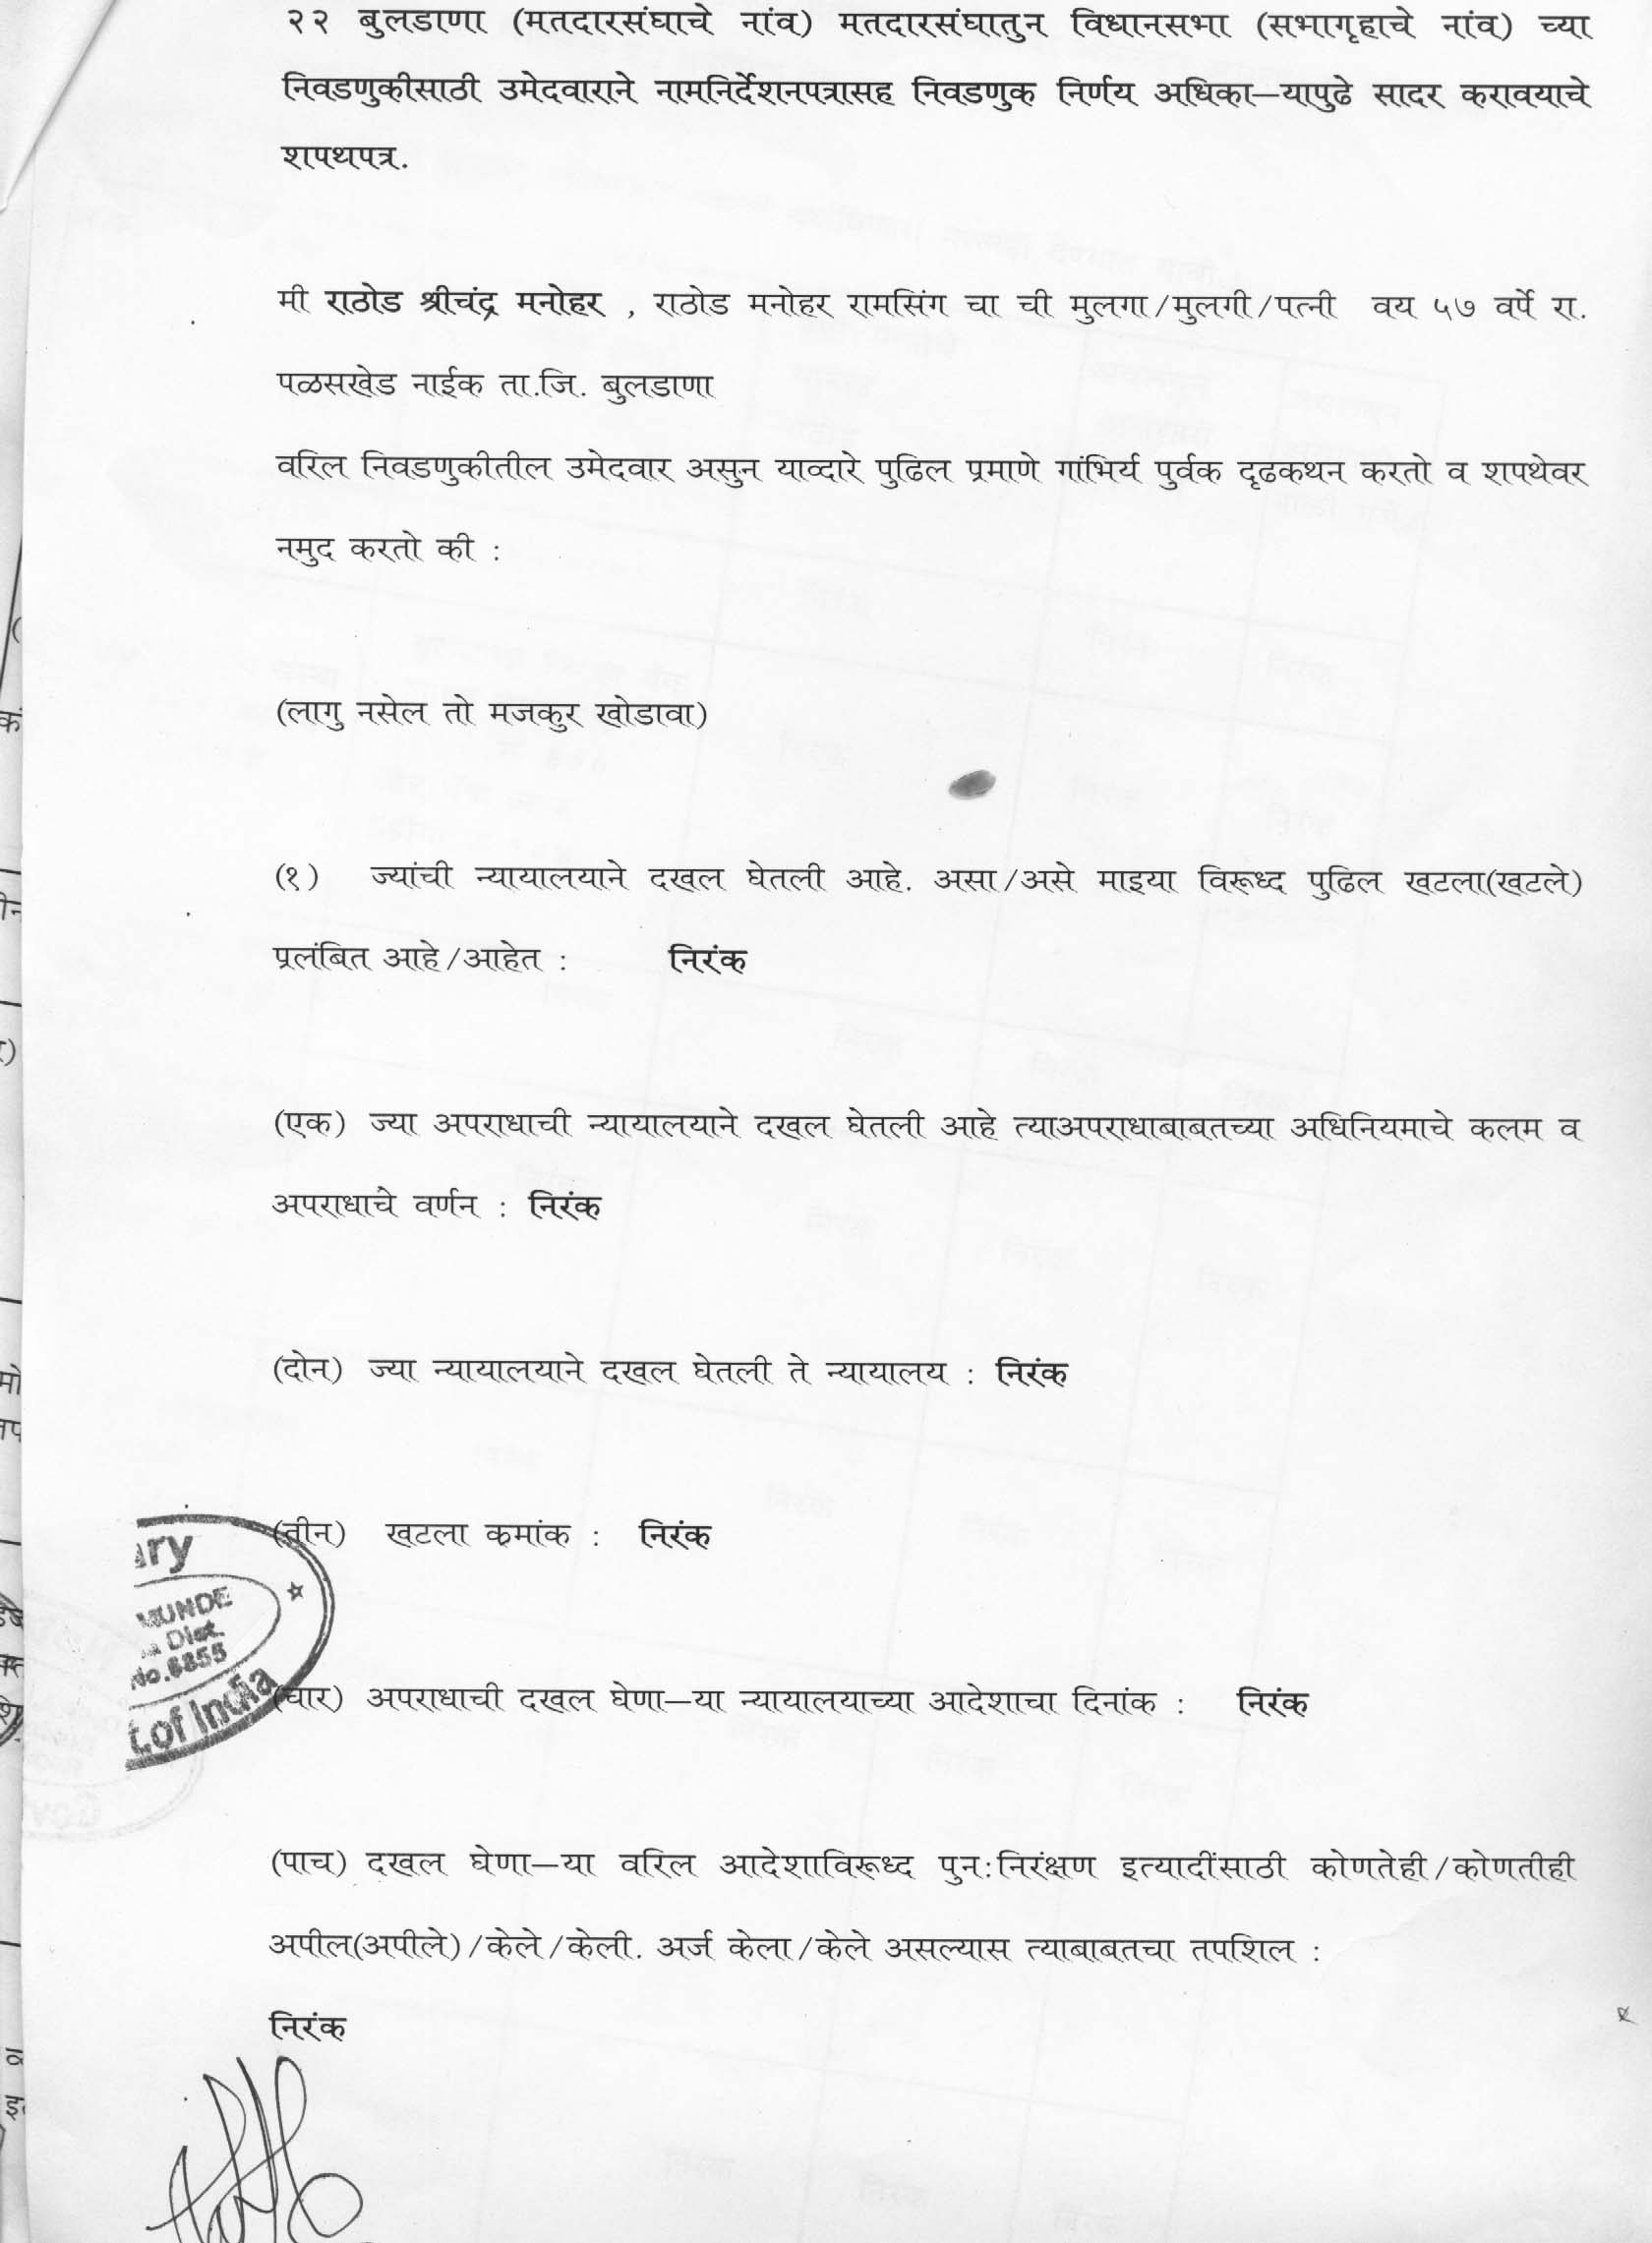 २२ बुलडाणा (मतदारसंघाचे नांव) मतदारसंघातुन विधानसभा (सभागृहाचे नांव) च्या
निवडणुकीसाठी उमेदवाराने नामनिर्देशनपत्रासह निवडणुक निर्णय अधिका—यापुढे सादर करावयाचे
शपथपत्र.
मी राठोड श्रीचंद्र मनोहर , राठोड मनोहर रामसिंग चा ची मुलगा/मुलगी/पत्नी वय ५७ वर्षे रा.
पळसखेड नाईक ता.जि. बुलडाणा
वरिल निवडणुकीतील उमेदवार असुन याव्दारे पुढिल प्रमाणे गांभिर्य पुर्वक दृढकथन करतो व शपथेवर
नमुद करतो की :
(लागु नसेल तो मजकुर खोडावा)
(१) ज्यांची न्यायालयाने दखल घेतली आहे. असा/असे माझ्या विरूध्द पुढिल खटला(खटले)
प्रलंबित आहे/आहेत : निरंक
(एक) ज्या अपराधाची न्यायालयाने दखल घेतली आहे त्याअपराधाबाबतच्या अधिनियमाचे कलम व
अपराधाचे वर्णन : निरंक
(दोन) ज्या न्यायालयाने दखल घेतली ते न्यायालय : निरंक
(तीन) खटला क्रमांक : निरंक
ary
MUNDE
Dist.
No.6855
t.of India
(चार) अपराधाची दखल घेणा—या न्यायालयाच्या आदेशाचा दिनांक : निरंक
(पाच) दखल घेणा—या वरिल आदेशाविरूध्द पुन:निरंक्षण इत्यादींसाठी कोणतेही/कोणतीही
अपील(अपीले)/केले/केली. अर्ज केला/केले असल्यास त्याबाबतचा तपशिल :
निरंक